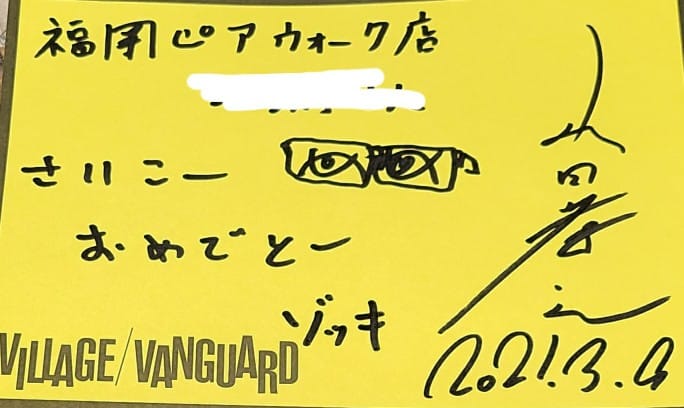 福岡ピアウォーク店
さいこー
おめでとー
ゾッキ
VILLAGE/VANGUARD
2021.3.